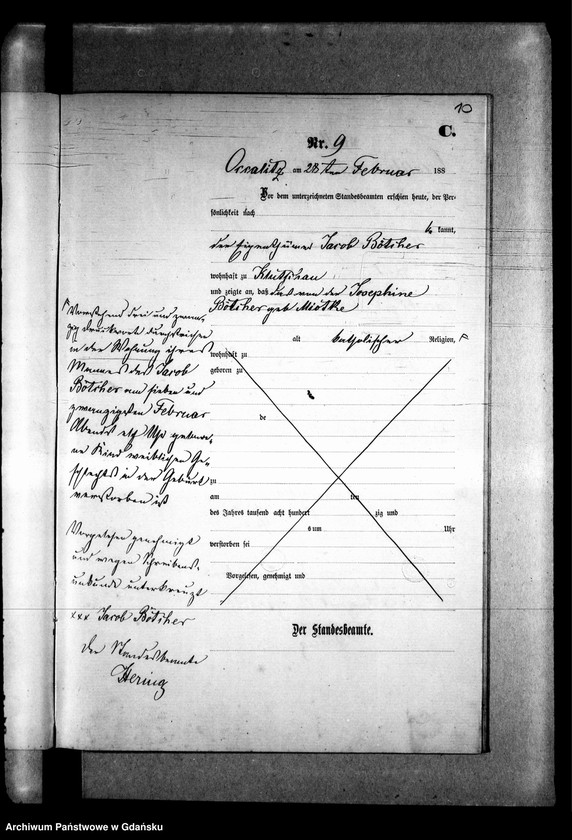 10
C.
Nr. 9
Occalitz am 28ten Februar 188
Vor dem unterzeichneten Standesbeamten erschien heute, der Per-
sönlichkeit nach
kannt,
der Eigenthümer Jacob Bötcher
wohnhaft zu Klutschau
und zeigte an, daß das von der Josephine
Bötcher geb Miotke
alt katholischer Religion,
wohnhaft zu
geboren zu
de
zu
am ten
des Jahres tausend acht hundert zig und
um Uhr
verstorben sei
Vorgelesen, genehmigt und
Der Standesbeamte.
Vorstehend drei und zwan-
zig Druckwort durchstrichen
in der Wohnung ihres
Mannes des Jacob
Bötcher am sieben und
zwanzigsten Februar
Abends elf Uhr gebore-
ne Kind weiblichen Ge-
schlechts in der Geburt
verstorben ist
Vorgelesen genehmigt
und wegen Schreibens-
unkunde unterkreuzt
xxx Jacob Bötcher
Der Standesbeamte
Hering
Archiwum Państwowe w Gdańsku